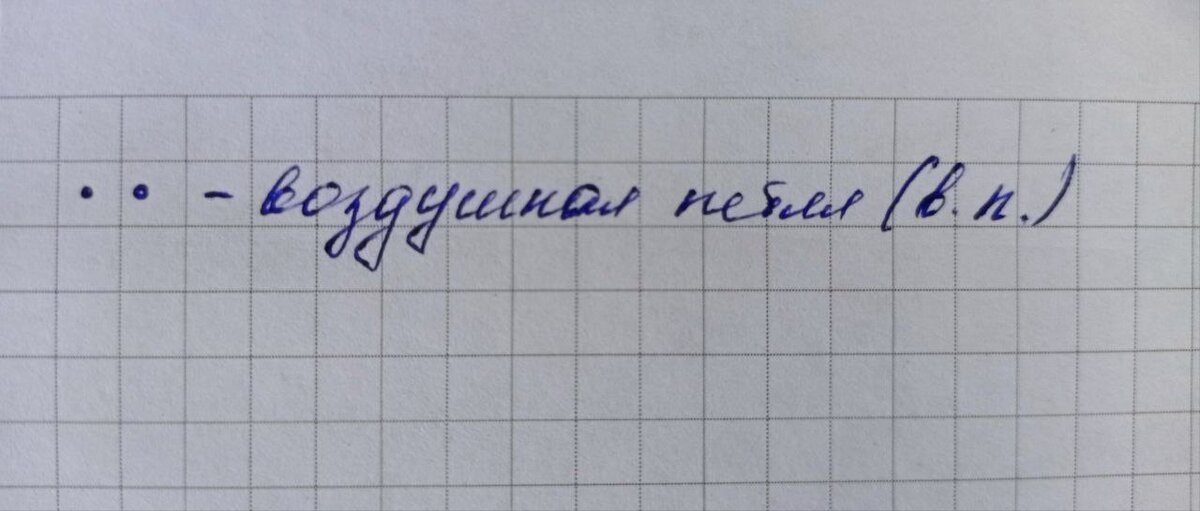 • • - воздушная петля (в.п.)